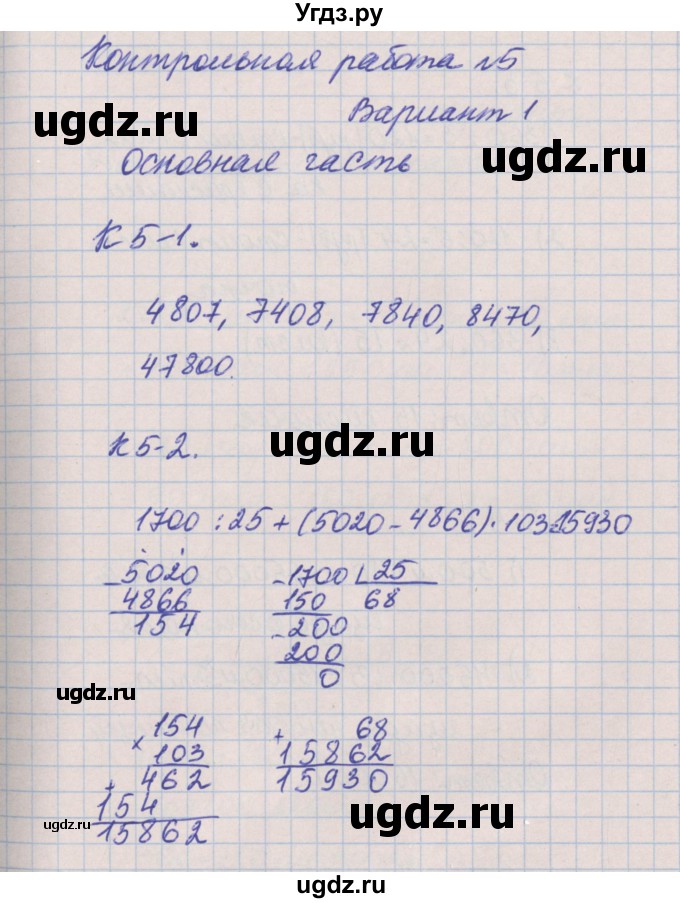 Угдз.ру
Контрольная работа №5
ugdz.ru
Вариант 1
ugdz.ru
Основная часть
К 5-1.
4807, 7408, 7840, 8470,
47800.
ugdz.ru
К 5-2.
1700 : 25 + (5020 - 4866) · 103 = 15930
- 5020
4866
154
- 1700 25
150 68
- 200
200
0
ugdz.ru
ugdz.ru
× 154
103
+ 462
154
15862
+ 68
15862
15930
ugdz.ru
ugdz.ru
ugdz.ru